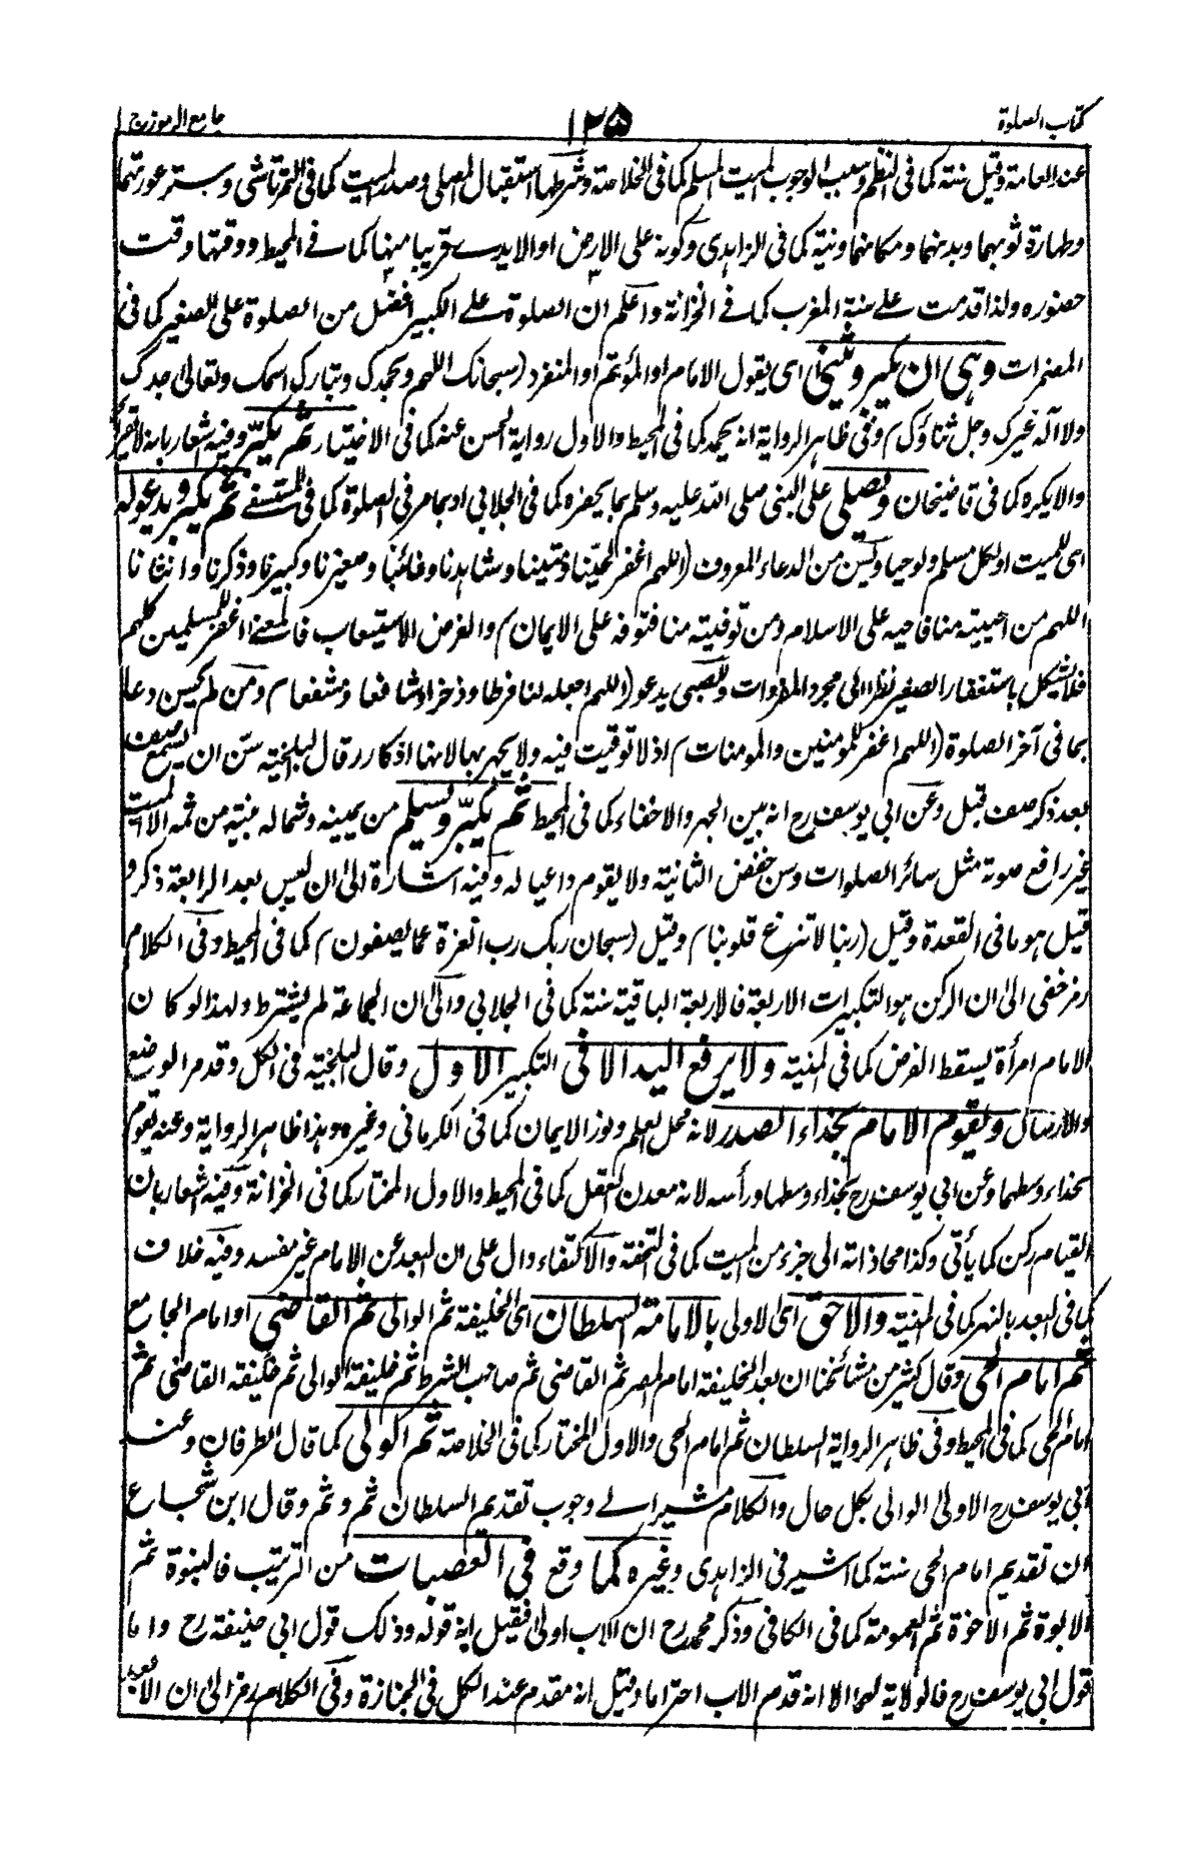 كتاب الصلوة
١٢٥
جامع الرموز ج ١
عند العامة وقيل سنة كما فى النظم وسبب الوجوب الميت المسلم كما فى الخلاصة وشرطها استقبال المصلى وصدر الميت كما فى التمرتاشى وستر عورتهما
وطهارة ثوبهما وبدنهما ومكانهما ونية كما فى الزاهدى وكونه على الارض او الايدى قريبا منها كما فى المحيط ووقتها وقت
حضوره ولذا قدمت على سنة المغرب كما فى الخزانة واعلم ان الصلوة على الكبير افضل من الصلوة على الصغير كما فى
المضمرات وهى ان يكبر ويثنى اى يقول الامام او المؤتم او المنفرد (سبحانك اللهم وبحمدك وتبارك اسمك وتعالى جدك
ولا اله غيرك وجل ثناؤك) وفى ظاهر الرواية انه يحمد كما فى المحيط والاول رواية الحسن عنه كما فى الاختيار ثم يكبر وفيه اشعار بانه لا يقرأ
والا يكره كما فى قاضيخان ويصلى على النبى صلى الله عليه وسلم بما يحضره كما فى الجلابى او بما مر فى الصلوة كما فى المستصفى ثم يكبر ويدعو له
اى للميت او لكل مسلم ولو حيا ويسن من الدعاء المعروف (اللهم اغفر لحينا وميتنا وشاهدنا وغائبنا وصغيرنا وكبيرنا وذكرنا وانثانا
اللهم من احييته منا فاحيه على الاسلام ومن توفيته منا فتوفه على الايمان) والغرض الاستيعاب فالمعنى اغفر للمسلمين كلهم
فلا يشكل باستغفار الصغير نظرا الى مجرد المفردات وللصبى يدعو (اللهم اجعله لنا فرطا وذخرا وشافعا ومشفعا) ومن لم يحسن دعا
بما فى آخر الصلوة (اللهم اغفر للمومنين والمومنات) اذ لا توقيت فيه ولا يجهر بها لانها اذكار وقال البلخية سن ان يسمع صف
بعد ذكر صف قبل وعن ابى يوسف رح انه بين الجهر والاخفاء كما فى المحيط ثم يكبر ويسلم من يمينه وشماله بنية من ثمه الا الميت
غير رافع صوته مثل سائر الصلوات وسن خفض الثانية ولا يقوم داعيا له وفيه اشارة الى ان ليس بعد الرابعة ذكر و
قيل هو ما فى القعدة وقيل (ربنا لا تزغ قلوبنا) وقيل (سبحان ربك رب العزة عما يصفون) كما فى المحيط وفى الكلام
رمز خفى الى ان الركن هو التكبيرات الاربعة فالاربعة الباقية سنة كما فى الجلابى والى ان الجماعة لم يشترط ولهذا لو كان
الامام امرأة يسقط الفرض كما فى المنية ولا يرفع اليد الا فى التكبير الاول وقال البلخية فى الكل وقدم الوضع
والارسال ويقوم الامام بحذاء الصدر لانه محل العلم ونور الايمان كما فى الكرمانى وغيره وهذا ظاهر الرواية وعنه يقوم
بحذاء وسطهما وعن ابى يوسف رح بحذاء وسطها ورأسه لانه معدن العقل كما فى المحيط والاول المختار كما فى الخزانة وفيه اشعار بان
القيام ركن كما يأتى وكذا محاذاته الى جزء من الميت كما فى التحفة والاكتفاء دال على ان البعد عن الامام غير مفسد وفيه خلاف
كما فى البعد بالنهر كما فى المنية والاحق اى الاولى بالامامة السلطان اى الخليفة ثم الوالى ثم القاضى او امام الجامع
ثم امام الحى وقال كثير من مشائخنا ان بعد الخليفة امام المصر ثم القاضى ثم صاحب الشرط ثم خليفة الوالى ثم خليفة القاضى ثم
امام الحى كما فى المحيط وفى ظاهر الرواية السلطان ثم امام الحى والاول المختار كما فى الخلاصة ثم الولى كما قال الطرفان وعند
ابى يوسف رح الاولى الوالى بكل حال والكلام مشير الى وجوب تقديم السلطان ثم وثم وقال ابن شجاع
ان تقديم امام الحى سنة كما اشير فى الزاهدى وغيره كما وقع فى العصبات من الترتيب فالبنوة ثم
الابوة ثم الاخوة ثم العمومة كما فى الكافى وذكر محمد رح ان الاب اولى فقيل انه قوله وذلك قول ابى حنيفة رح واما
قول ابى يوسف رح فالولاية لهما الا انه قدم الاب احتراما وقيل انه مقدم عند الكل فى الجنازة وفى الكلام رمز الى ان الابعد